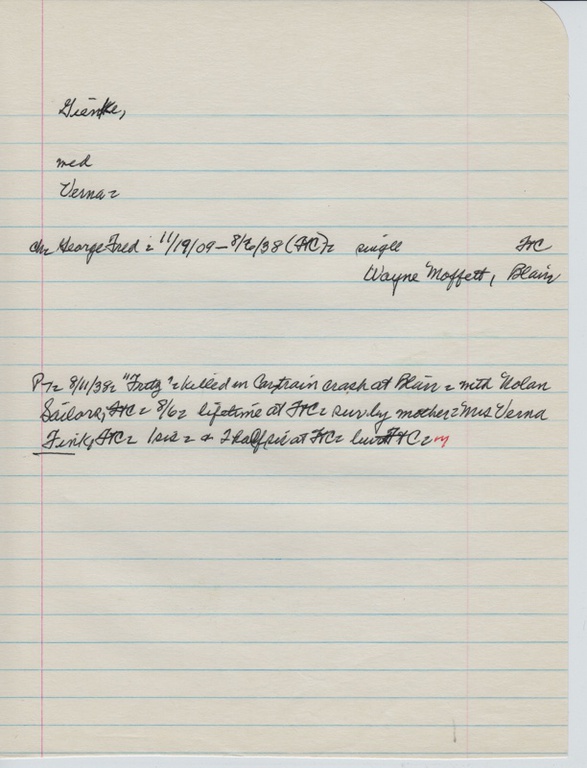 Gienke,
med
Verna =
ch= George Fred = 11/19/09 - 8/6/38 (FtC) = single FtC
Wayne Moffett, Blair
P-T= 8/11/38 = "Fritz" = killed in Car train crash at Blair = with Nolan
Sailors, FtC = 8/6 = lifetime at FtC = surv by mother = Mrs Verna
Fink, FtC = 1 sis = & 2 half sis at FtC = bur FtC =